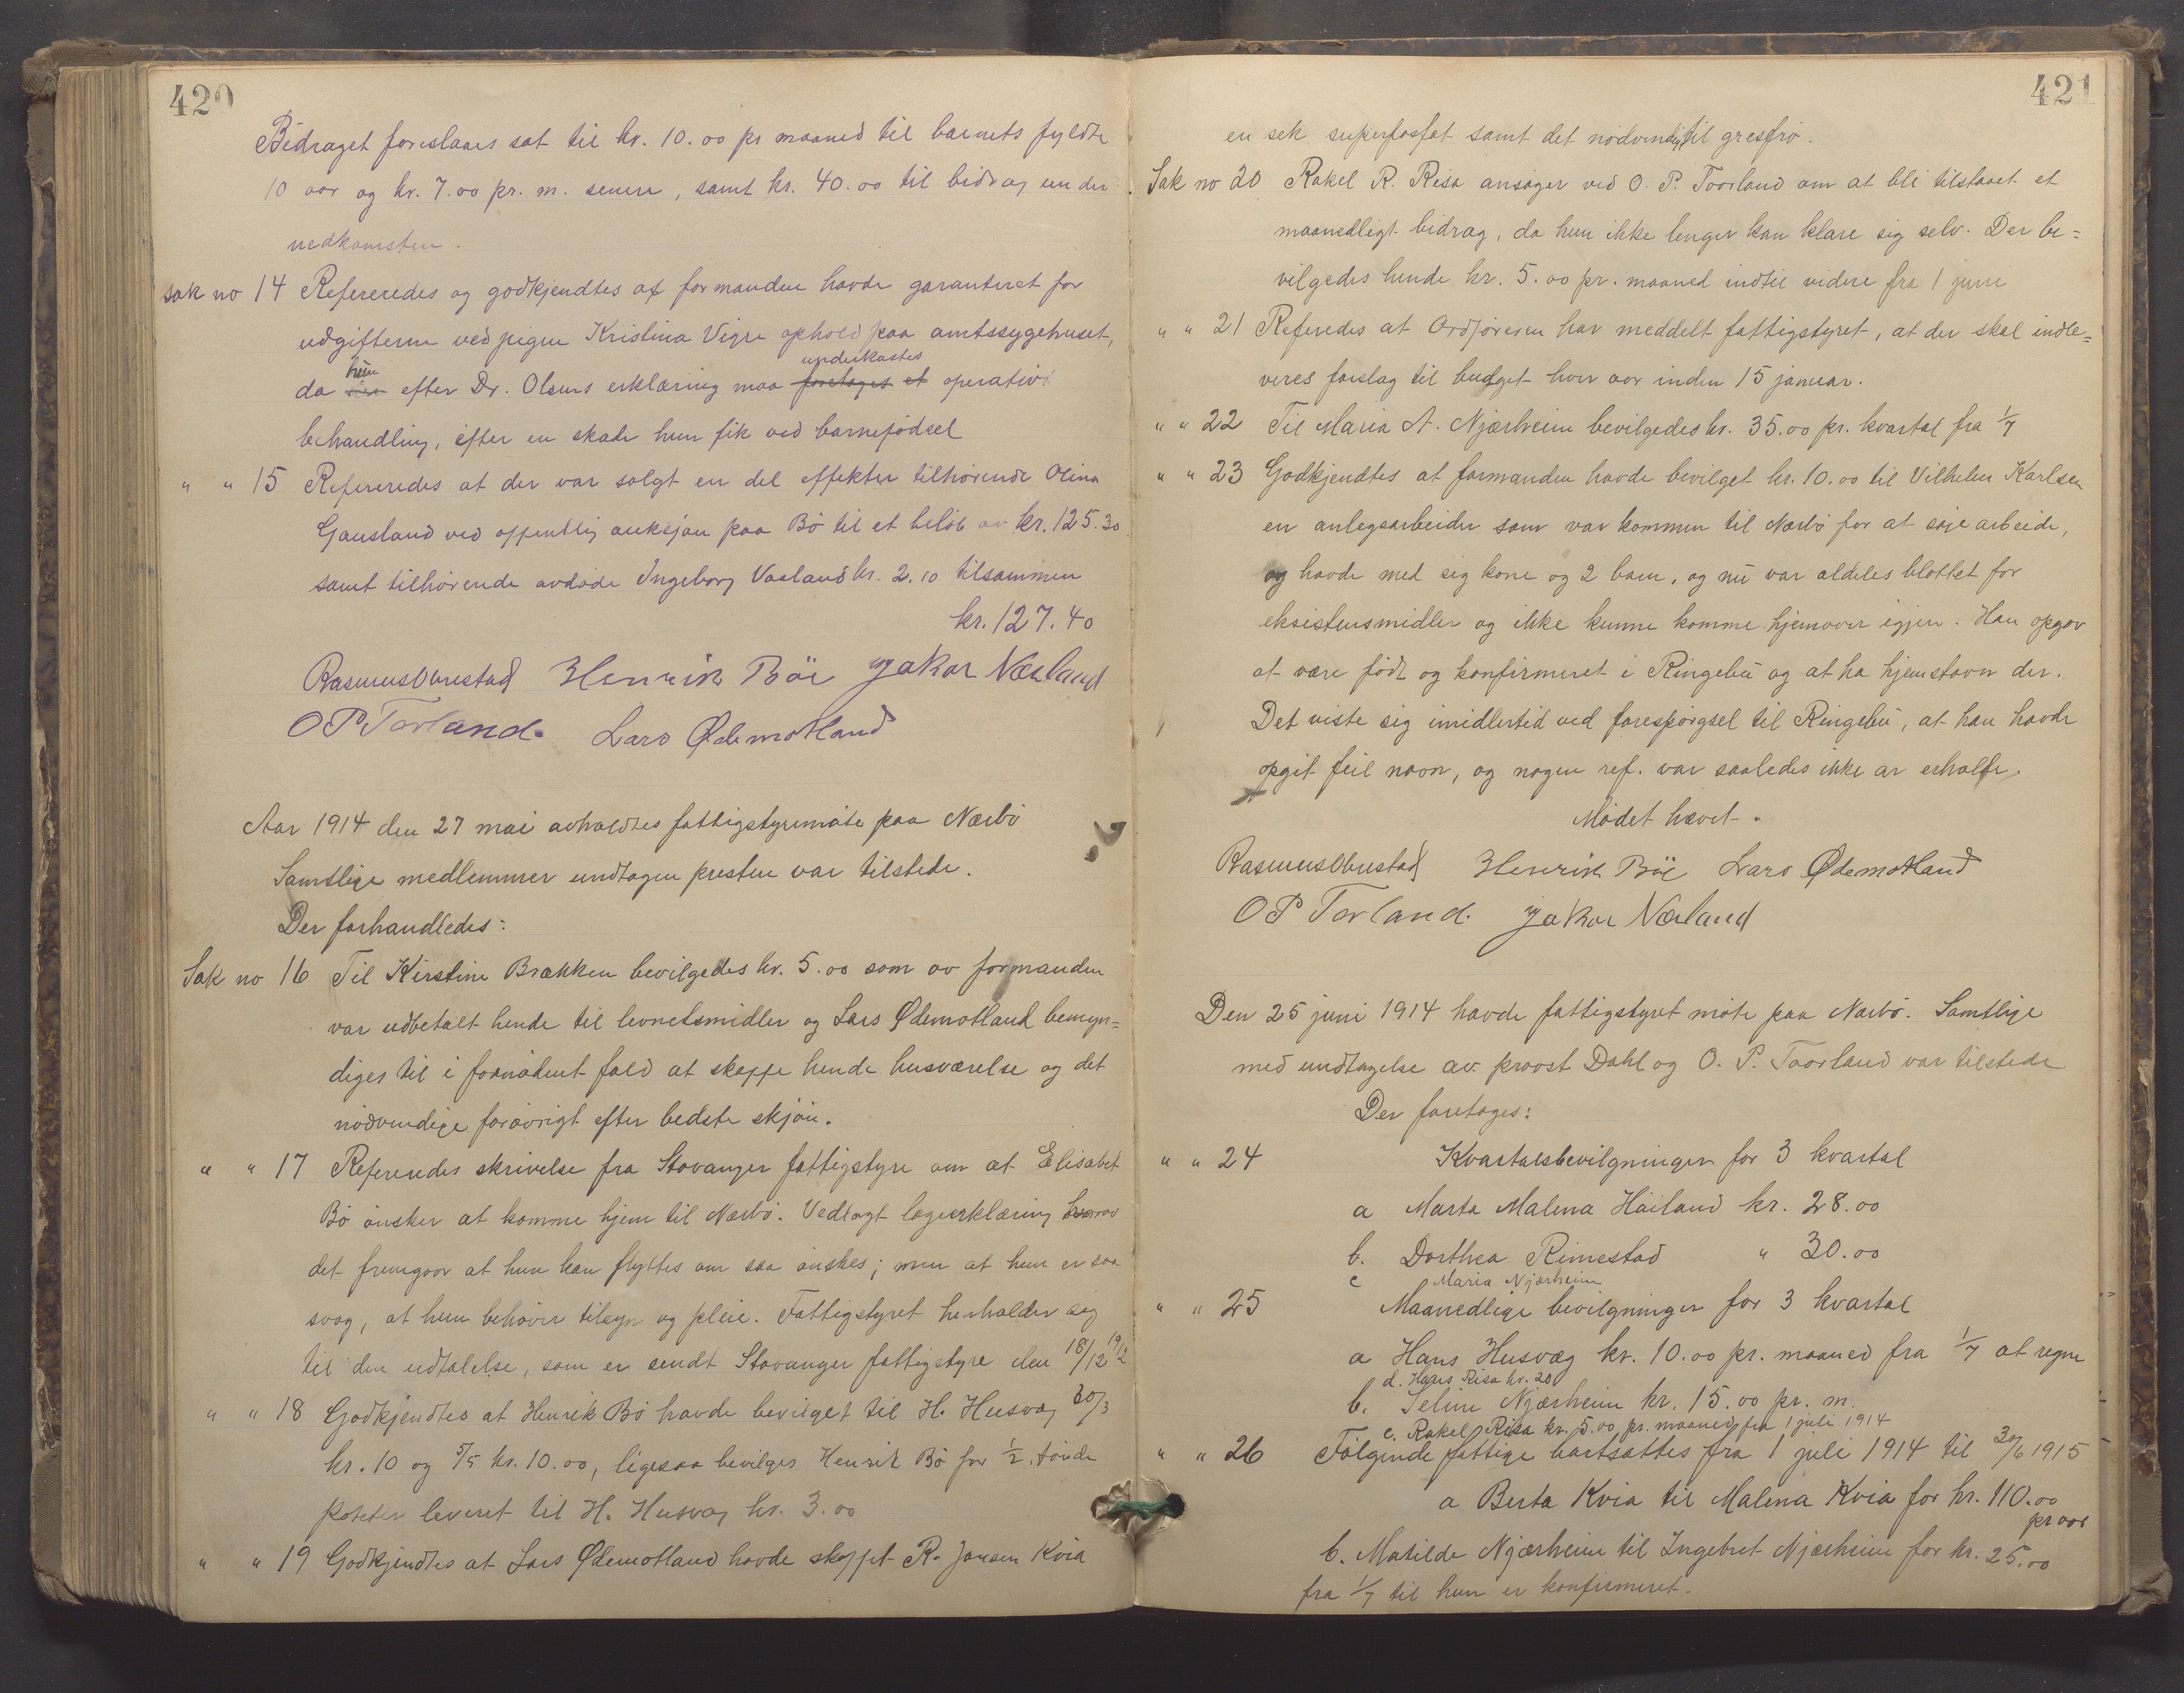 420
Bidraget foreslaaes sat til kr. 10.00 pr maaned til barnets fyldte
10 aar og kr. 7.00 pr. m. senere, samt kr. 40.00 til bidrag under
nedkomsten.
Sak no 14 Refereredes og godkjendtes at formanden havde garanteret for
udgifterne ved pigen Kristina Vigre ophold paa amtssygehuset,
da hun efter Dr. Olsens erklæring maa foretages et underkastes operativ
behandling, efter en skade hun fik ved barnefødsel
" " 15 Refereredes at der var solgt en del effekter tilhørende Olina
Gausland ved offentlig auksjon paa Bö til et beløb av kr. 125.30
samt tilhørende avdøde Ingeborg Vaaland kr. 2.10 tilsammen
kr. 127.40
Rasmus Obrestad Henrik Böe Jakob Nærland
O P Torland. Lars Ødemotland
Aar 1914 den 27 mai avholdtes fattigstyremøte paa Nærbö
Samtlige medlemmer undtagen presten var tilstede.
Der forhandledes:
Sak no 16 Til Kirstine Brækken bevilgedes kr. 5.00 som av formanden
var udbetalt hende til levnetsmidler og Lars Ødemotland bemyn=
diges til i fornødent fald at skaffe hende husværelse og det
nødvendige forøvrigt efter bedste skjøn.
" " 17 Refereredes skrivelse fra Stavanger fattigstyre om at Elisabet
Bö ønsker at komme hjem til Nærbö. Vedlagt lægeerklæring hvorav
det fremgaar at hun kan flyttes om saa ønskes; men at hun er saa
svag, at hun behøver tilsyn og pleie. Fattigstyret henholder sig
til den udtalelse, som er sendt Stavanger fattigstyre den 18/12 19/2
" " 18 Godkjendtes at Henrik Bö havde bevilget til H. Husvæg 20/3
kr. 10 og 5/5 kr. 10.00, ligesaa bevilges Henrik Bö for 1/2 tønde
poteter leveret til H. Husvæg kr. 3.00
" " 19 Godkjendtes at Lars Ødemotland havde skaffet R. Jonsen Kvia
421
en sek superfosfat samt det nødvendig til gresfrø.
Sak no 20 Rakel R. Risa ansøger ved O. P. Toorland om at bli tilstaaet et
maanedligt bidrag, da hun ikke lenger kan klare sig selv. Der be=
vilgedes hende kr. 5.00 pr. maaned indtil videre fra 1 juni
" " 21 Referedes at Ordføreren har meddelt fattigstyret, at der skal indle=
veres forslag til budget hver aar inden 15 januar.
" " 22 Til Maria A. Njærheim bevilgedes kr. 35.00 pr. kvartal fra 1/7
" " 23 Godkjendtes at formanden havde bevilget kr. 10.00 til Vilhelm Karlsen
en anlegsarbeider som var kommen til Nærbö for at søge arbeide,
og havde med sig kone og 2 barn, og nu var aldeles blottet for
eksistensmidler og ikke kunne komme hjemover igjen. Han opgav
at være født og konfirmeret i Ringebu og at ha hjemstavn der.
Det viste sig imidlertid ved forespørgsel til Ringebu, at han havde
opgit feil navn, og nogen ref. var saaledes ikke at erholde.
Mødet hævet.
Rasmus Obrestad Henrik Böe Lars Ødemotland
O P Torland. Jakob Nærland
Den 25 juni 1914 havde fattigstyret møte paa Nærbö. Samtlige
med undtagelse av provst Dahl og O. P. Toorland var tilstede
Der foretages:
" " 24 Kvartalsbevilgninger for 3 kvartal
a Marta Malena Håiland kr. 28.00
b. Dorthea Rimestad " 30.00
c Maria Njærheim
" " 25 Maanedlige bevilgninger for 3 kvartal
a Hans Husvæg kr. 10.00 pr. maaned fra 1/7 at regne
d. Hans Risa kr. 20
b. Seline Njærheim kr. 15.00 pr. m.
c. Rakel Risa kr. 5.00 pr. maaned fra 1 juli 1914
" " 26 Følgende fattige bortsættes fra 1 juli 1914 til 30/6 1915
a Berta Kvia til Malena Kvia for kr. 110.00
pr aar
b. Matilde Njærheim til Ingebret Njærheim for kr. 25.00
fra 1/7 til hun er konfirmeret.